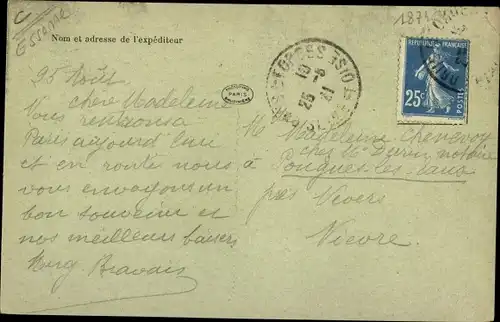 Essonne
1871
Nom et adresse de l'expéditeur
REPUBLIQUE FRANÇAISE
25c
POSTES
FORGES
S.-&-OISE
10 -5
25 -
21
PARIS
25 Août
chère Madeleine
Nous rentrons à
Paris aujourd'hui
et en route nous
vous envoyons un
bon souvenir et
nos meilleurs baisers
Marg Bravais
Mlle Madeleine Chenevoy
chez Me Durin notaire
à Pougues-les-eaux
près Nevers
Nievre